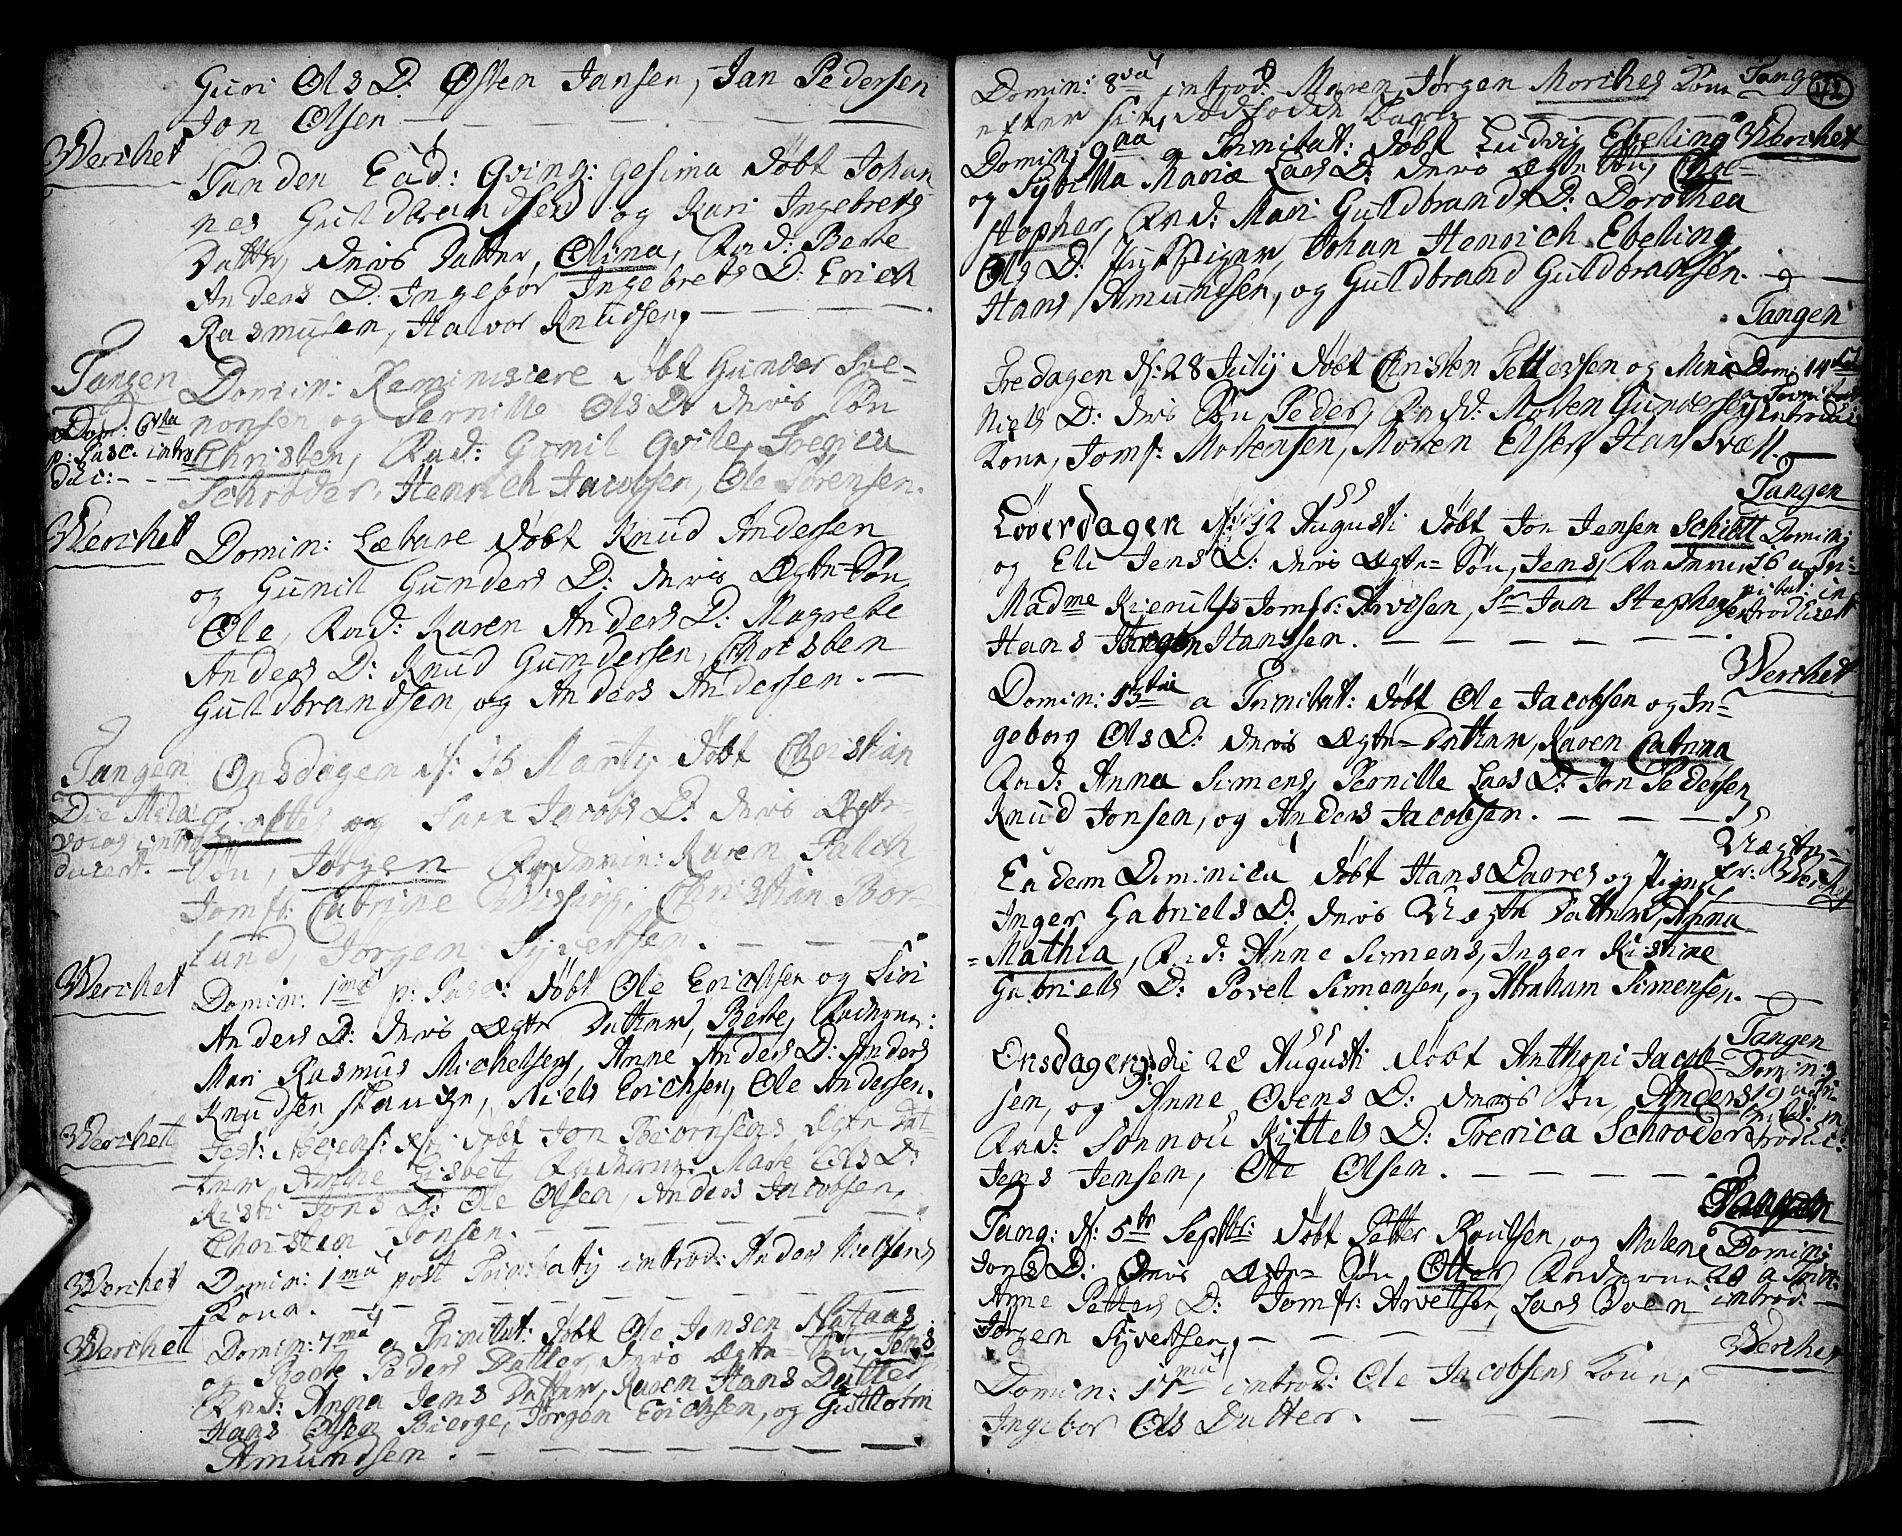 Guri Ols D: Østen Jansen, Jan Pedersen
Jon Olsen
Werchet
Tanden Ead: Qving: gesima døbt Johan
nes Guldbrandsen og Kari Ingebrets
Datter, deris Datter, Olina, Fad: Berte
Anders D: Ingebor Ingebrets D: Erich
Rasmusen, Halvor Knudsen,
Tangen
Domin: Reminiscere døbt Gunder Sve-
nonsen og Pernille Ols D: deris Søn
Dom: 6ta
p: Pasc: intro
duc:
Christen, Fad: Gunil Qvile, Frerica
Schrøder, Henrich Jacobsen, Ole Sørensen.
Werchet
Domin: Lætare døbt Knud Andersen
og Gunil Gunders D: deris Ægte Søn,
Ole, Fad: Karen Anders D: Magrete
Anders D: Knud Gundersen, Christen
Guldbrandsen, og Anders Andersen.
Tangen
Onsdagen d: 15 Martij døbt Christian
og Sara Jacobs D: deris Ægte
ducert.
Søn, Jørgen Fadderne: Karen Falch
Jomfr: Catrine Christian Bor-
lund, Jørgen Syvertsen.
Werchet
Domin: 1ma p: Pasc: døbt Ole Erichsen og Siri
Anders D: deris Ægte Datter, Berte, Fadderne:
Mari Rasmus Michelsens, Anne Anders D: Anders
Knudsen Niels Erichsen, Ole Andersen.
Werchet
Fest: Ascens: døbt Jon Biørnsens Ægte Dat
ter, Anne Lisbet, Fadderne Mari Ols D:
Kisti Jons D: Ole Olsen, Anders Jacobsen,
Christen Jonsen.
Werchet
Domin: 1ma post Trinitatij introd: Anders Nielsens
Kona.
Werchet
Domin: 7ma a Trinitat: døbt Ole Jensen Nataas
og Berte Peders Datter, deris Ægte Søn Jens
Fad: Anna Jens Datter, Karen Hans Datter
Hans Olsen Bierge, Jørgen Erichsen, og Guttorm
Amundsen.
42
Domin: 8va introd: Maren Jørgen Morches Kone Tangen
efter sin
Domin: 9na a Trinitat: døbt Ludvig Ebeling Werchet
og Sybilla Maria Lars D: deris Ægte Søn, Chri-
stopher, Fad: Mari Guldbrands D: Dorothea
Ols D: Johan Henrich Ebeling,
Hans Amundsen, og Guldbrand Guldbransen.
Tangen
Fredagen d: 28 Julij døbt Christen Pettersen og Mina
Niels D: deris Søn, Peder, Fad: Morten Gundersens
Kone, Jomf: Mortensen, Morten Elsen, Hans
Domi: 14
a Trinitat
introdu
Tangen
Løverdagen d: 12 Augusti døbt Jon Jensen Schiøtt
og Eli Jens D: deris Ægte Søn, Jens, Fadderne
Madme Kierulfs Jomfr: Arvesen, Sr Jan Stephensen
Hans Jørgen Hanssen.
Domin:
16 a Tri-
nitat: in
troducert
Werchet
Domin: 13tia a Trinitat: døbt Ole Jacobsen og In-
geborg Ols D: deris Ægte Datter, Karen Catrina
Fad: Anna Simens, Pernille Lars D: Jon Pedersen,
Knud Jonsen, og Anders Jacobsen.
Uægte
fr: Werchet
Eadem Dominica døbt Hans Daores og Pige
Inger Gabriels D: deris Uægte Datter, Anna
Mathia, Fad: Anne Simens, Inger Kistine
Gabriels D: Povel Simensen, og Abraham Simensen.
Tangen
Onsdagen die 22 Augusti døbt Anthoni Jacob-
sen, og Anne Ovens D: deris Søn, Anders
Fad: Sønnou Kittels D: Frerica Schrøder
Jens Jensen, Ole Olsen.
Domin:
19 a Tri
nitat: in
troduc:
Tangen
Tang: d: 5te Septbr: døbt Petter Poulsen, og Malene
Jons D: deris Ægte Søn Otter, Fadderne
Anne Petters D: Jomfr: Arvetsen, Lars Boen
Jørgen Syvertsen,
Domin:
20 a Trin:
introd:
Werchet
Domin: 17ma introd: Ole Jacobsens Kone,
Ingebor Ols Datter.